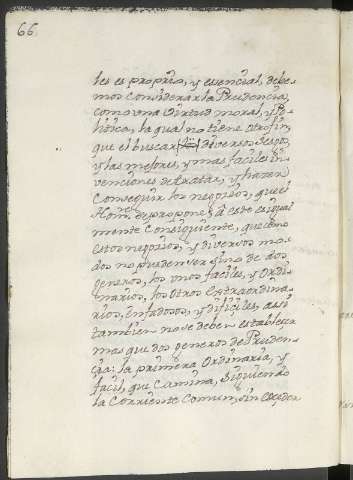 66.
les es proprio, y essencial, debe-
mos considerar la Prudencia,
como vna Virtud moral, y Po-
litica, la qual no tiene otro fin,
que el buscar diversos
y las mejores, y mas faciles in-
venciones de tratar, y hazer
Conseguir los negocios, que el
Hom.e se propone; â este es igual
mente Consiguiente, que como
estos negocios, y diversos mo-
dos no pueden ser sino de dos
generos, los vnos faciles, y Ordi-
narios, los otros extraordina-
rios, enfadosos, y dificiles, assi
tambien no se deben establecer
mas que dos generos de Pruden-
çia; la primera Ordinaria, y
facil, que Camina, Siguiendo
la Corriente Comun, sin exceder